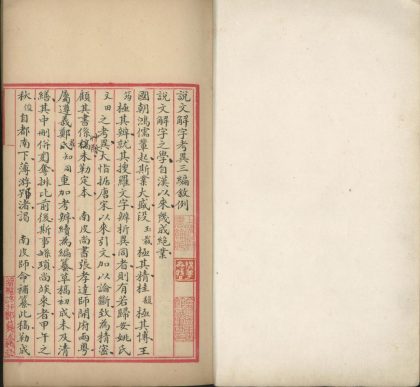 說文解字考異三編敘例
說文解字之學自漢以來幾成絕業
國朝鴻儒輩起斯業大盛段玉裁極其精桂馥極其博王
筠極其辨就其搜羅文字辨析異同者則有若歸安姚氏
文田之考異大恉據唐宋以來引文加以論斷致為精密
顧其書係稿未勒定本 南皮尚書張孝達師開府兩粵
屬遵義鄭氏知同重加考辨續為編纂草稿初成未及清
繕其中刪併圂奪排比前後斯事緐瑣尚竢來者甲午之
秋俊自都南下薄游鄂渚謁 南皮師命補纂此稿勒成